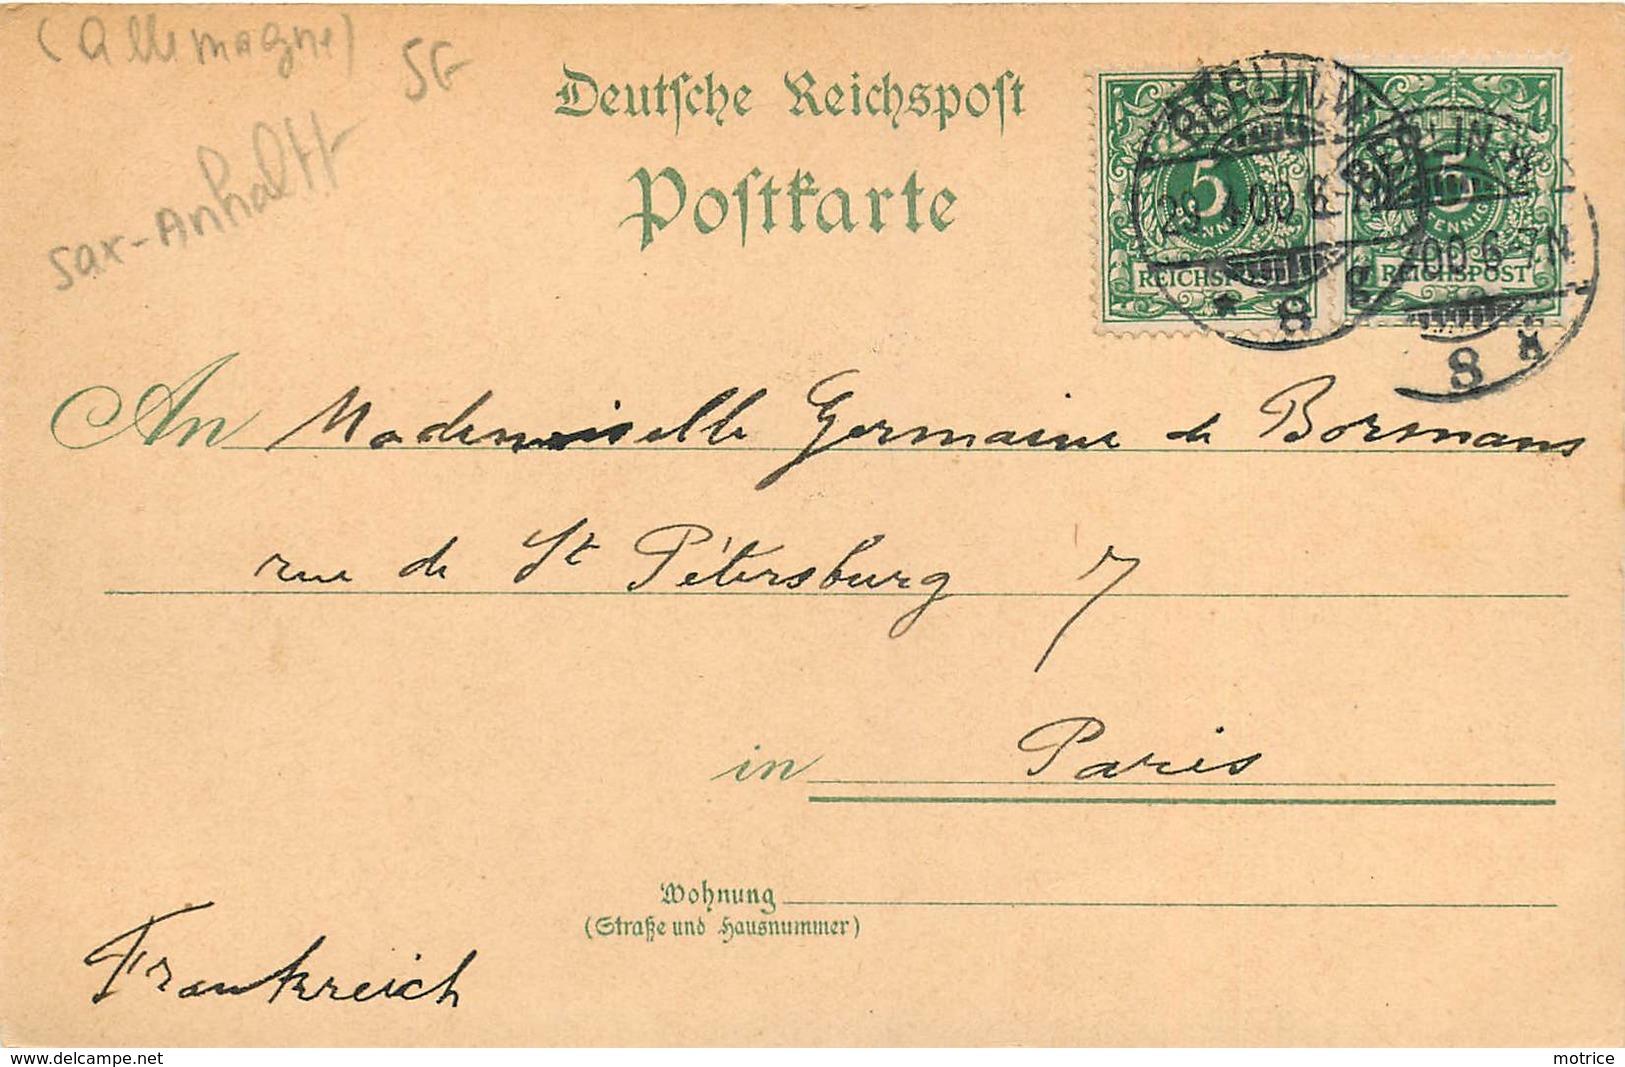 (Allemagne)
5G
Sax-Anhaltt
Deutsche Reichspost
Postkarte
5
PFENNIG
REICHSPOST
5
PFENNIG
REICHSPOST
BERLIN.W
00.6
* 8
BERLIN.W
00.6-7N
8 *
An Mademoiselle Germaine de Bormans
rue de St Pétersburg 7
in Paris
Wohnung
(Straße und Hausnummer)
Frankreich
www.delcampe.net
motrice